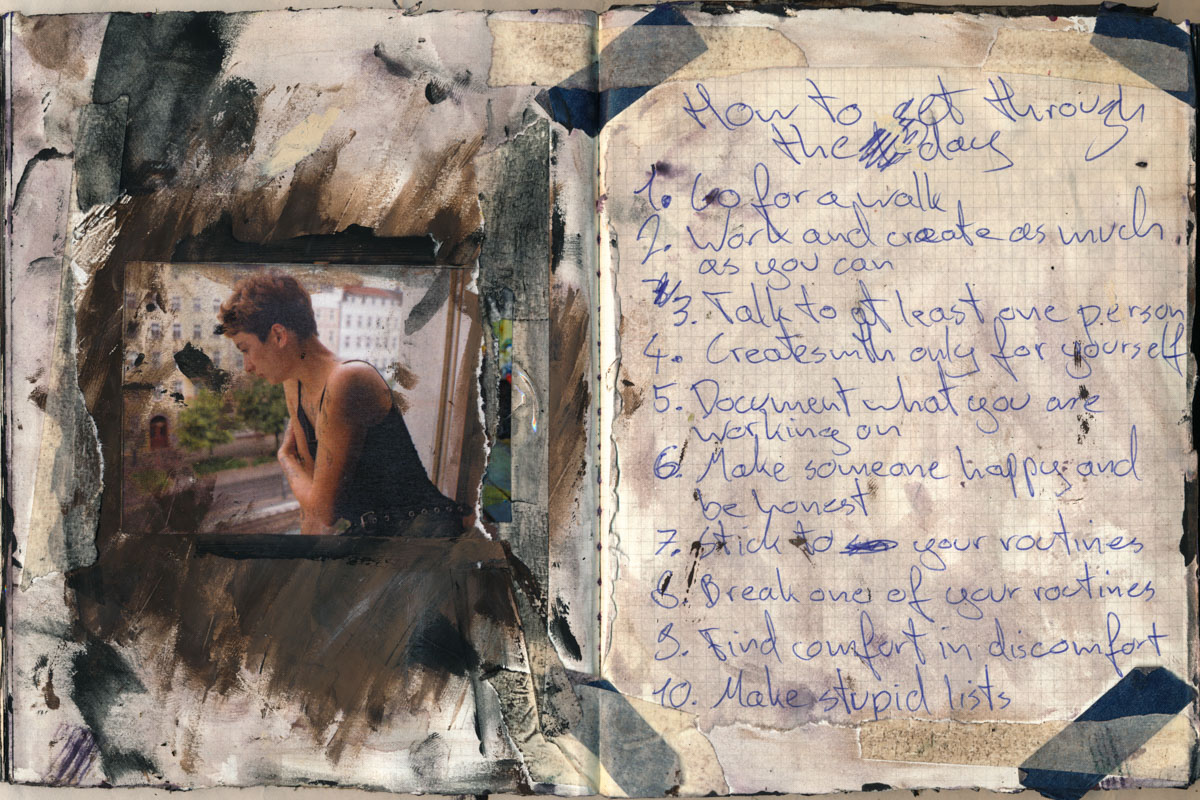 How to get through
the day
1. Go for a walk
2. Work and create as much
as you can
3. Talk to at least one person
4. Create smth only for yourself
5. Document what you are
working on
6. Make someone happy and
be honest
7. Stick to your routines
8. Break one of your routines
9. Find comfort in discomfort
10. Make stupid lists